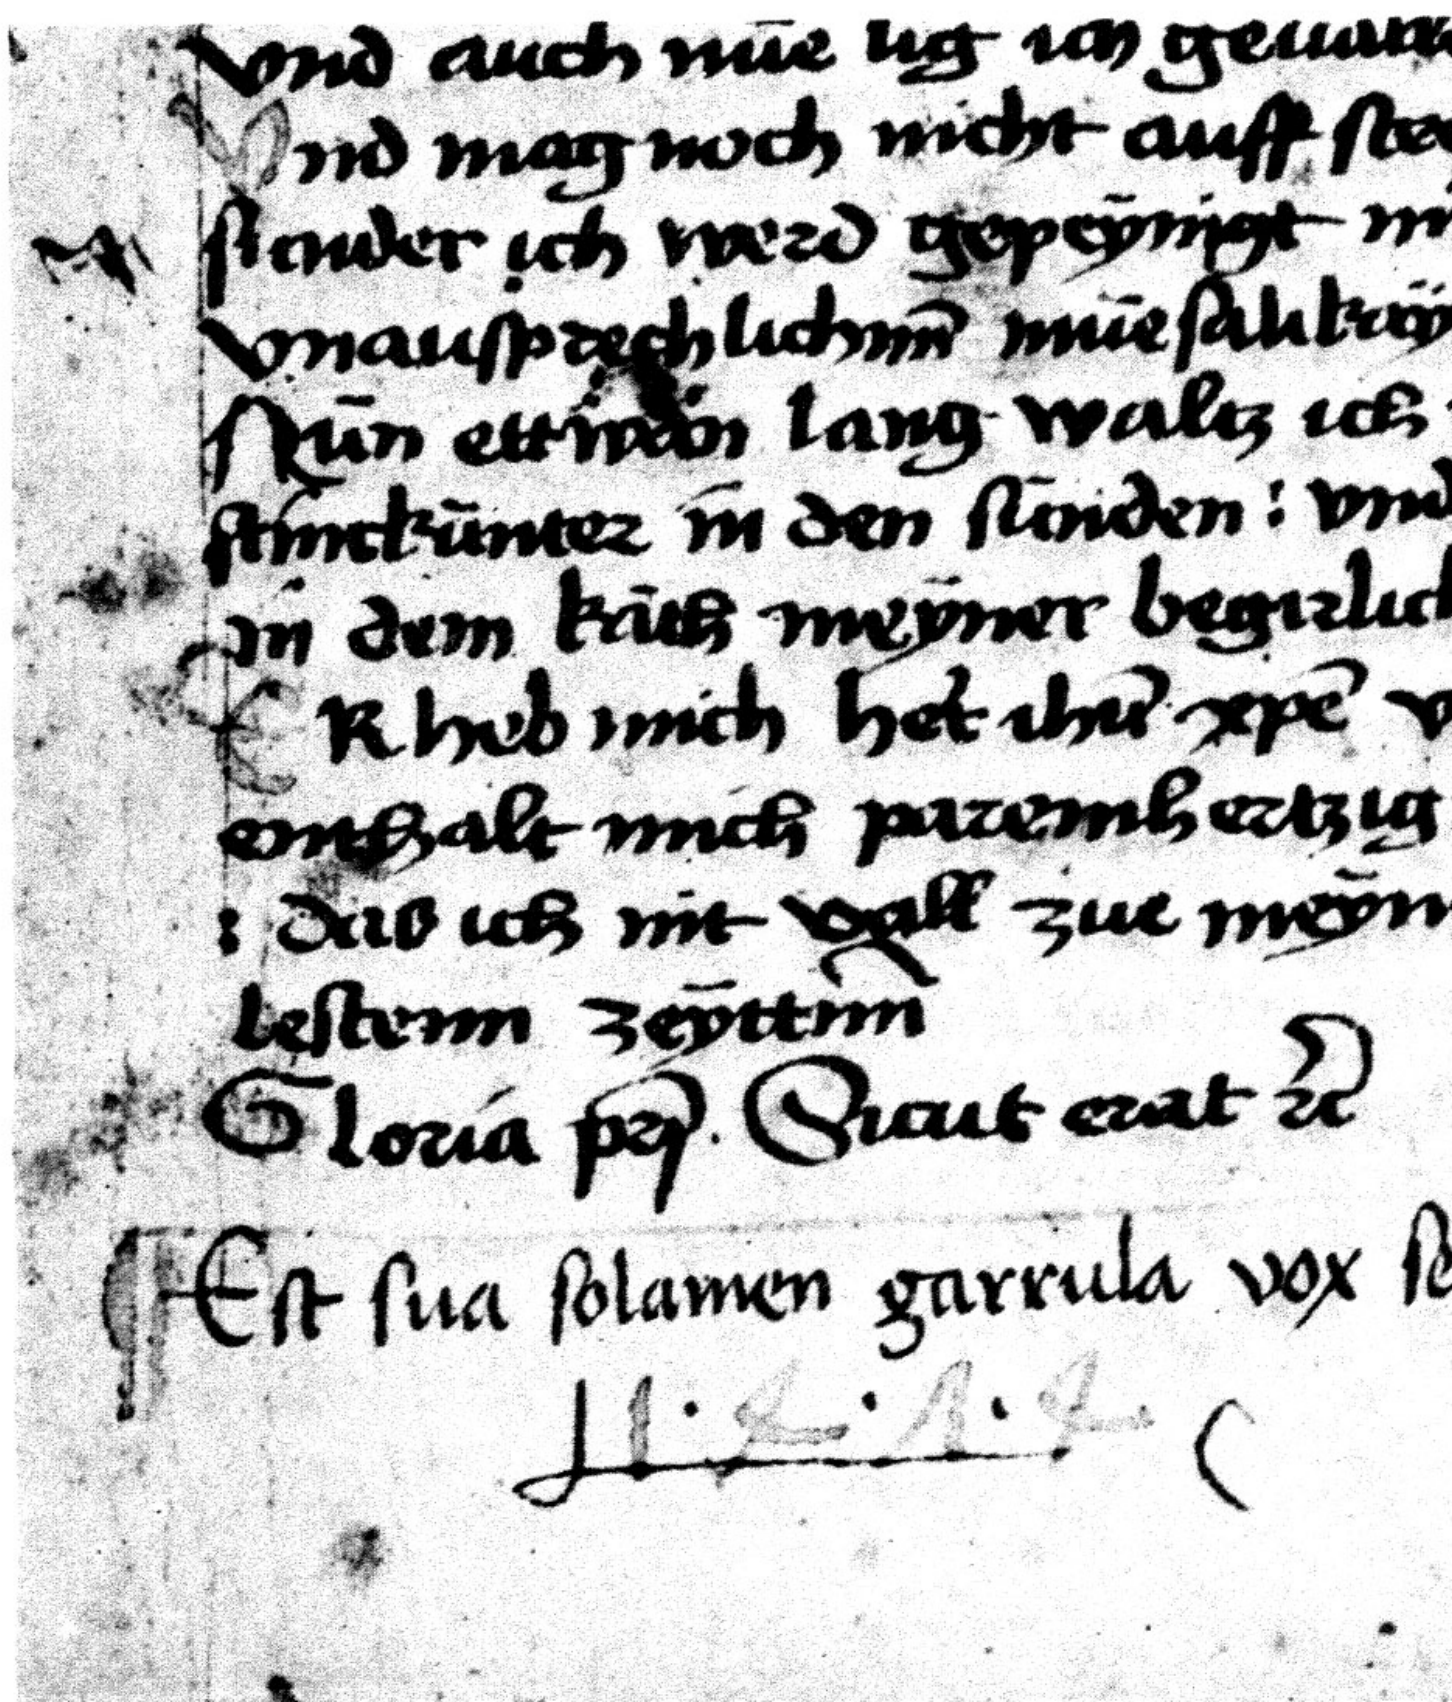 vnd auch nūe lig ich
Vnd mag noch nicht auff
sunder ich werd gepeÿnigt
vnausprechlichnn̄ mūesalikaÿ
Nūn ettwan lang waltz ich
stinckūnter in den sūnden : vnd
in dem kāth meÿner begirlich
ER heb mich het ihū xpē v
enthalt mich paremhertzig
: das ich nit vall zue meÿn
lestenn zeÿttnn̄
Gloria pr̄j. Sicut erat ꝛc̄
¶ Est sua solamen garrula vox se